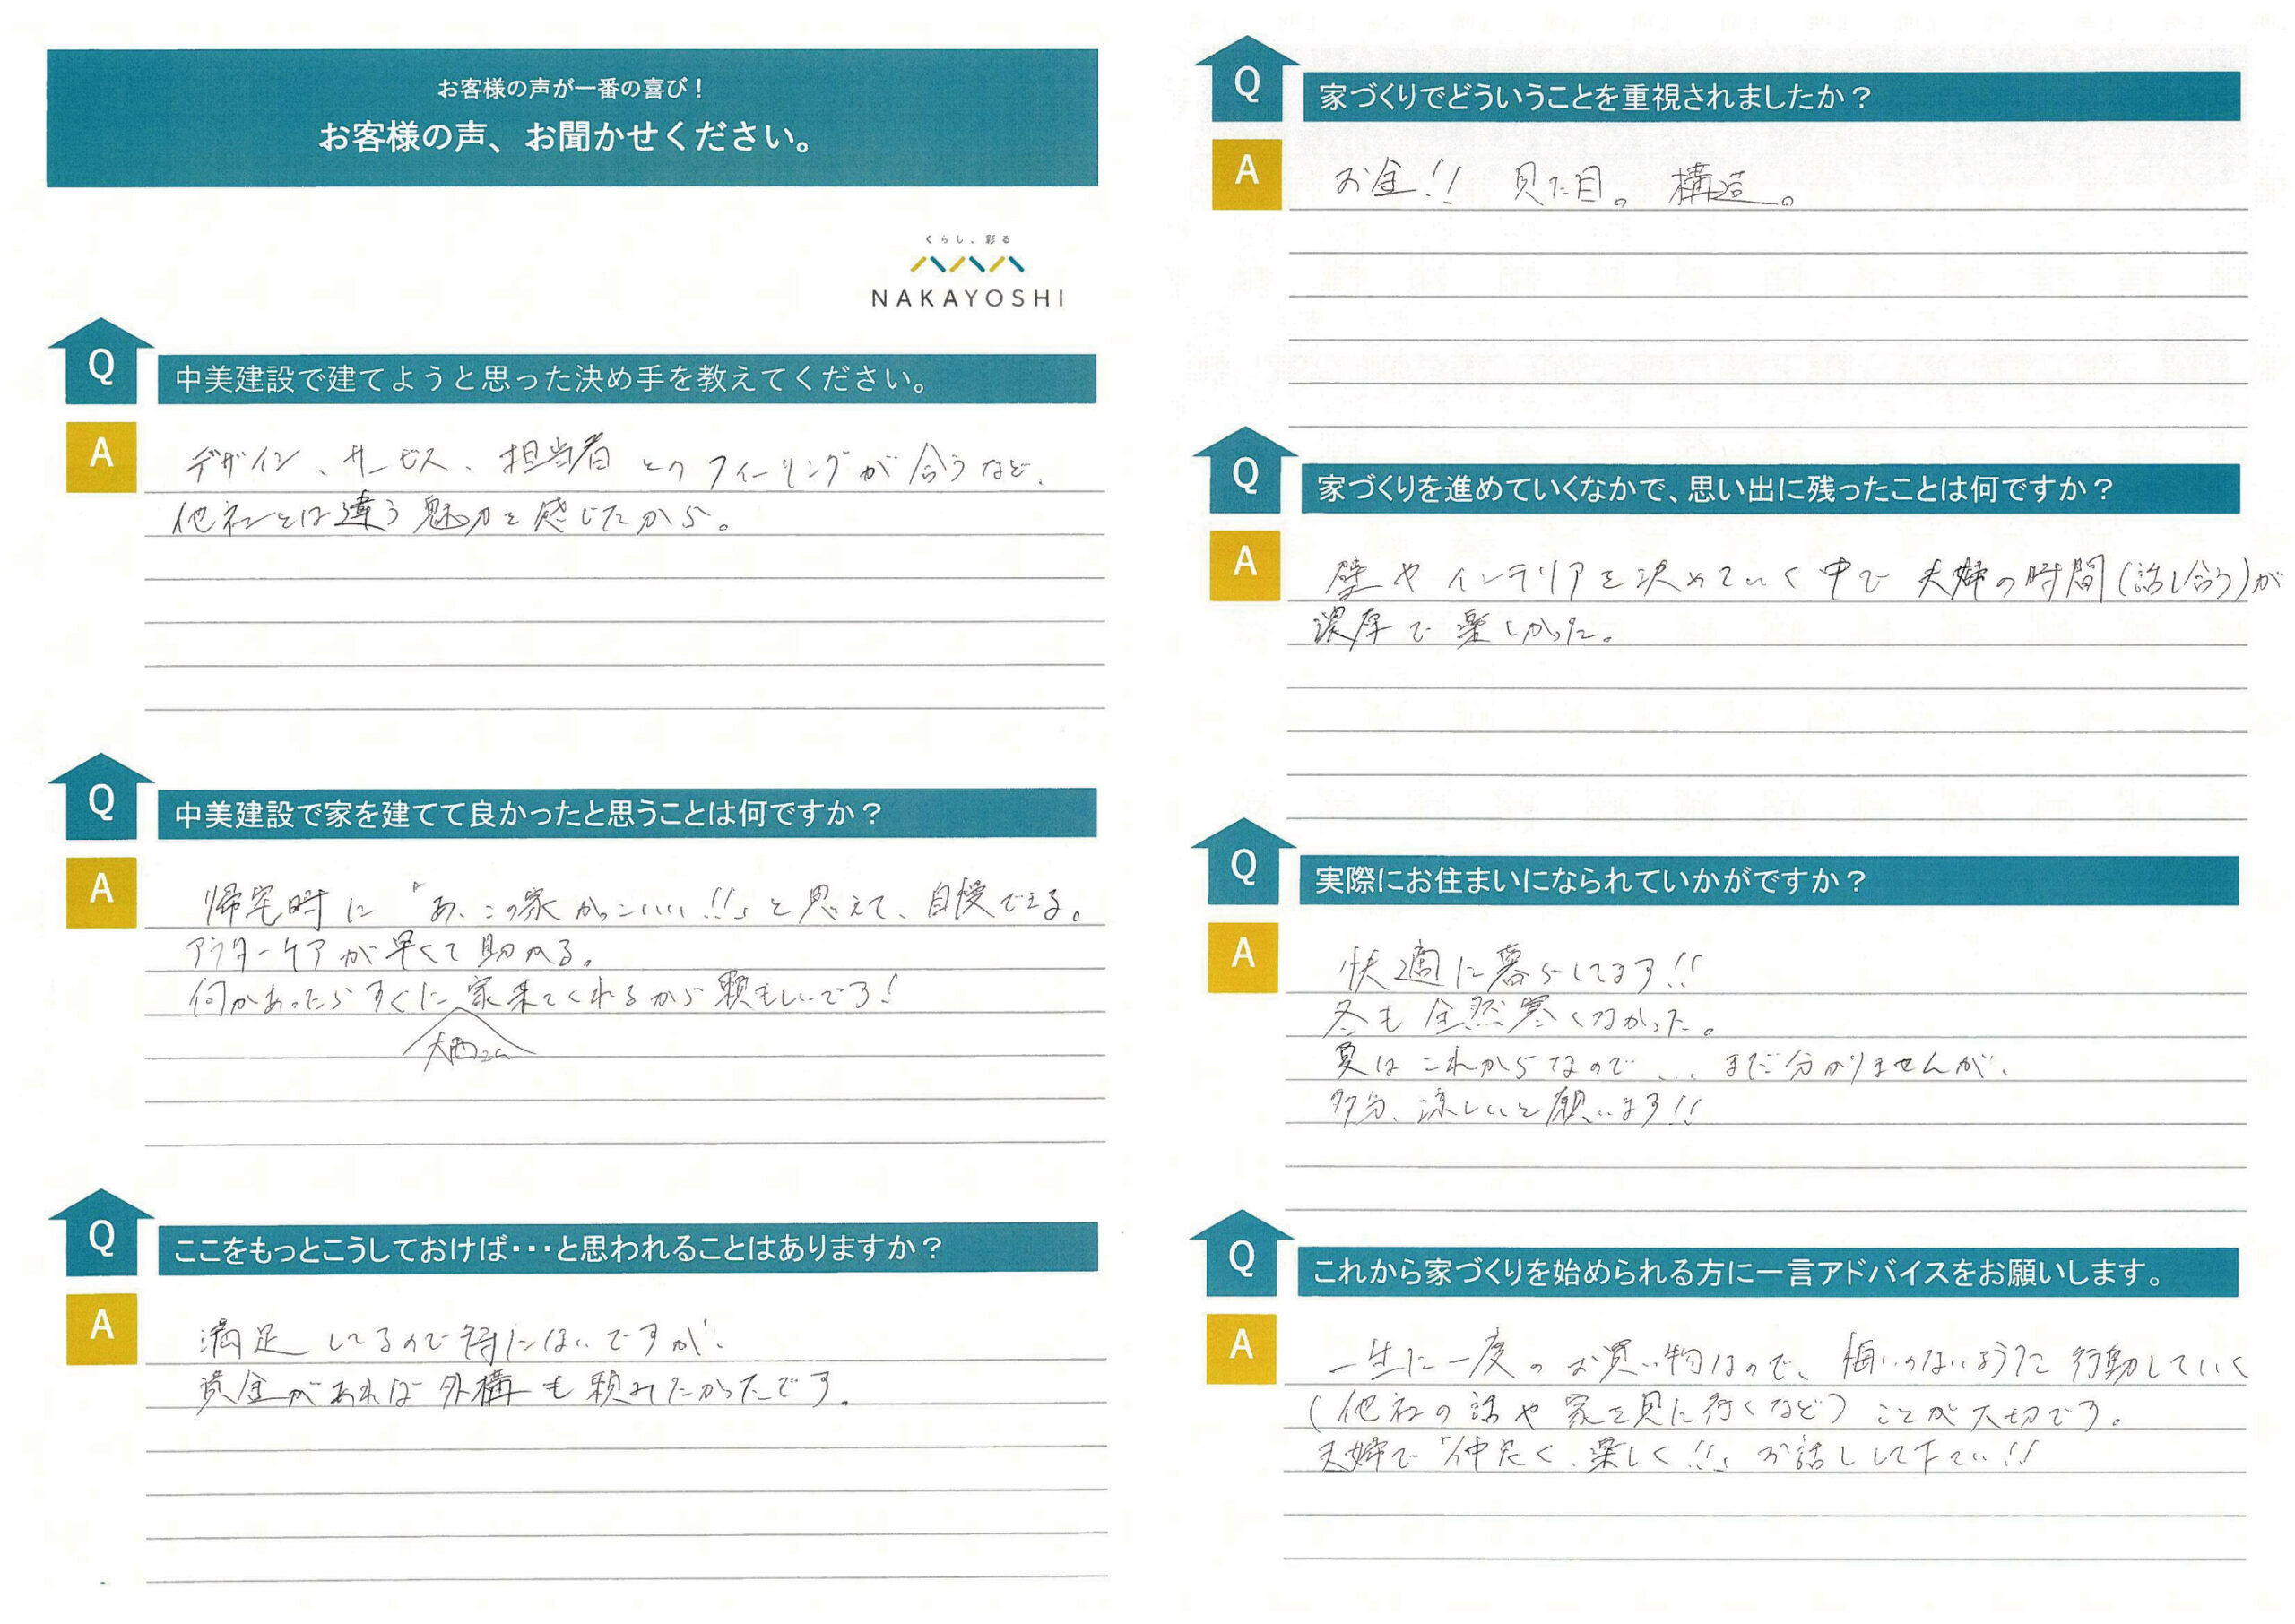 お客様の声が一番の喜び！
お客様の声、お聞かせください。
くらし、彩る
NAKAYOSHI
Q
中美建設で建てようと思った決め手を教えてください。
A
デザイン、サービス、担当者とのフィーリングが合うなど、
他社とは違う魅力を感じたから。
Q
中美建設で家を建てて良かったと思うことは何ですか？
A
帰宅時に「あ、この家かっこいい!!」と思えて、自慢できる。
アフターケアが早くて助かる。
何かあったらすぐに家来てくれるから頼もしいです!
大西さん
Q
ここをもっとこうしておけば・・・と思われることはありますか？
A
満足してるので特にはないですが、
資金があれば外構も頼みたかったです。
Q
家づくりでどういうことを重視されましたか？
A
お金!! 見た目。構造。
Q
家づくりを進めていくなかで、思い出に残ったことは何ですか？
A
壁やインテリアを決めていく中で夫婦の時間(話し合う)が
濃厚で楽しかった。
Q
実際にお住まいになられていかがですか？
A
快適に暮らしてます!!
冬も全然寒くなかった。
夏はこれからなので...まだ分かりませんが、
多分、涼しいと願います!!
Q
これから家づくりを始められる方に一言アドバイスをお願いします。
A
一生に一度のお買い物なので、悔いのないように行動していく
(他社の話や家を見に行くなど)ことが大切です。
夫婦で「仲良く、楽しく!!」お話しして下さい!!